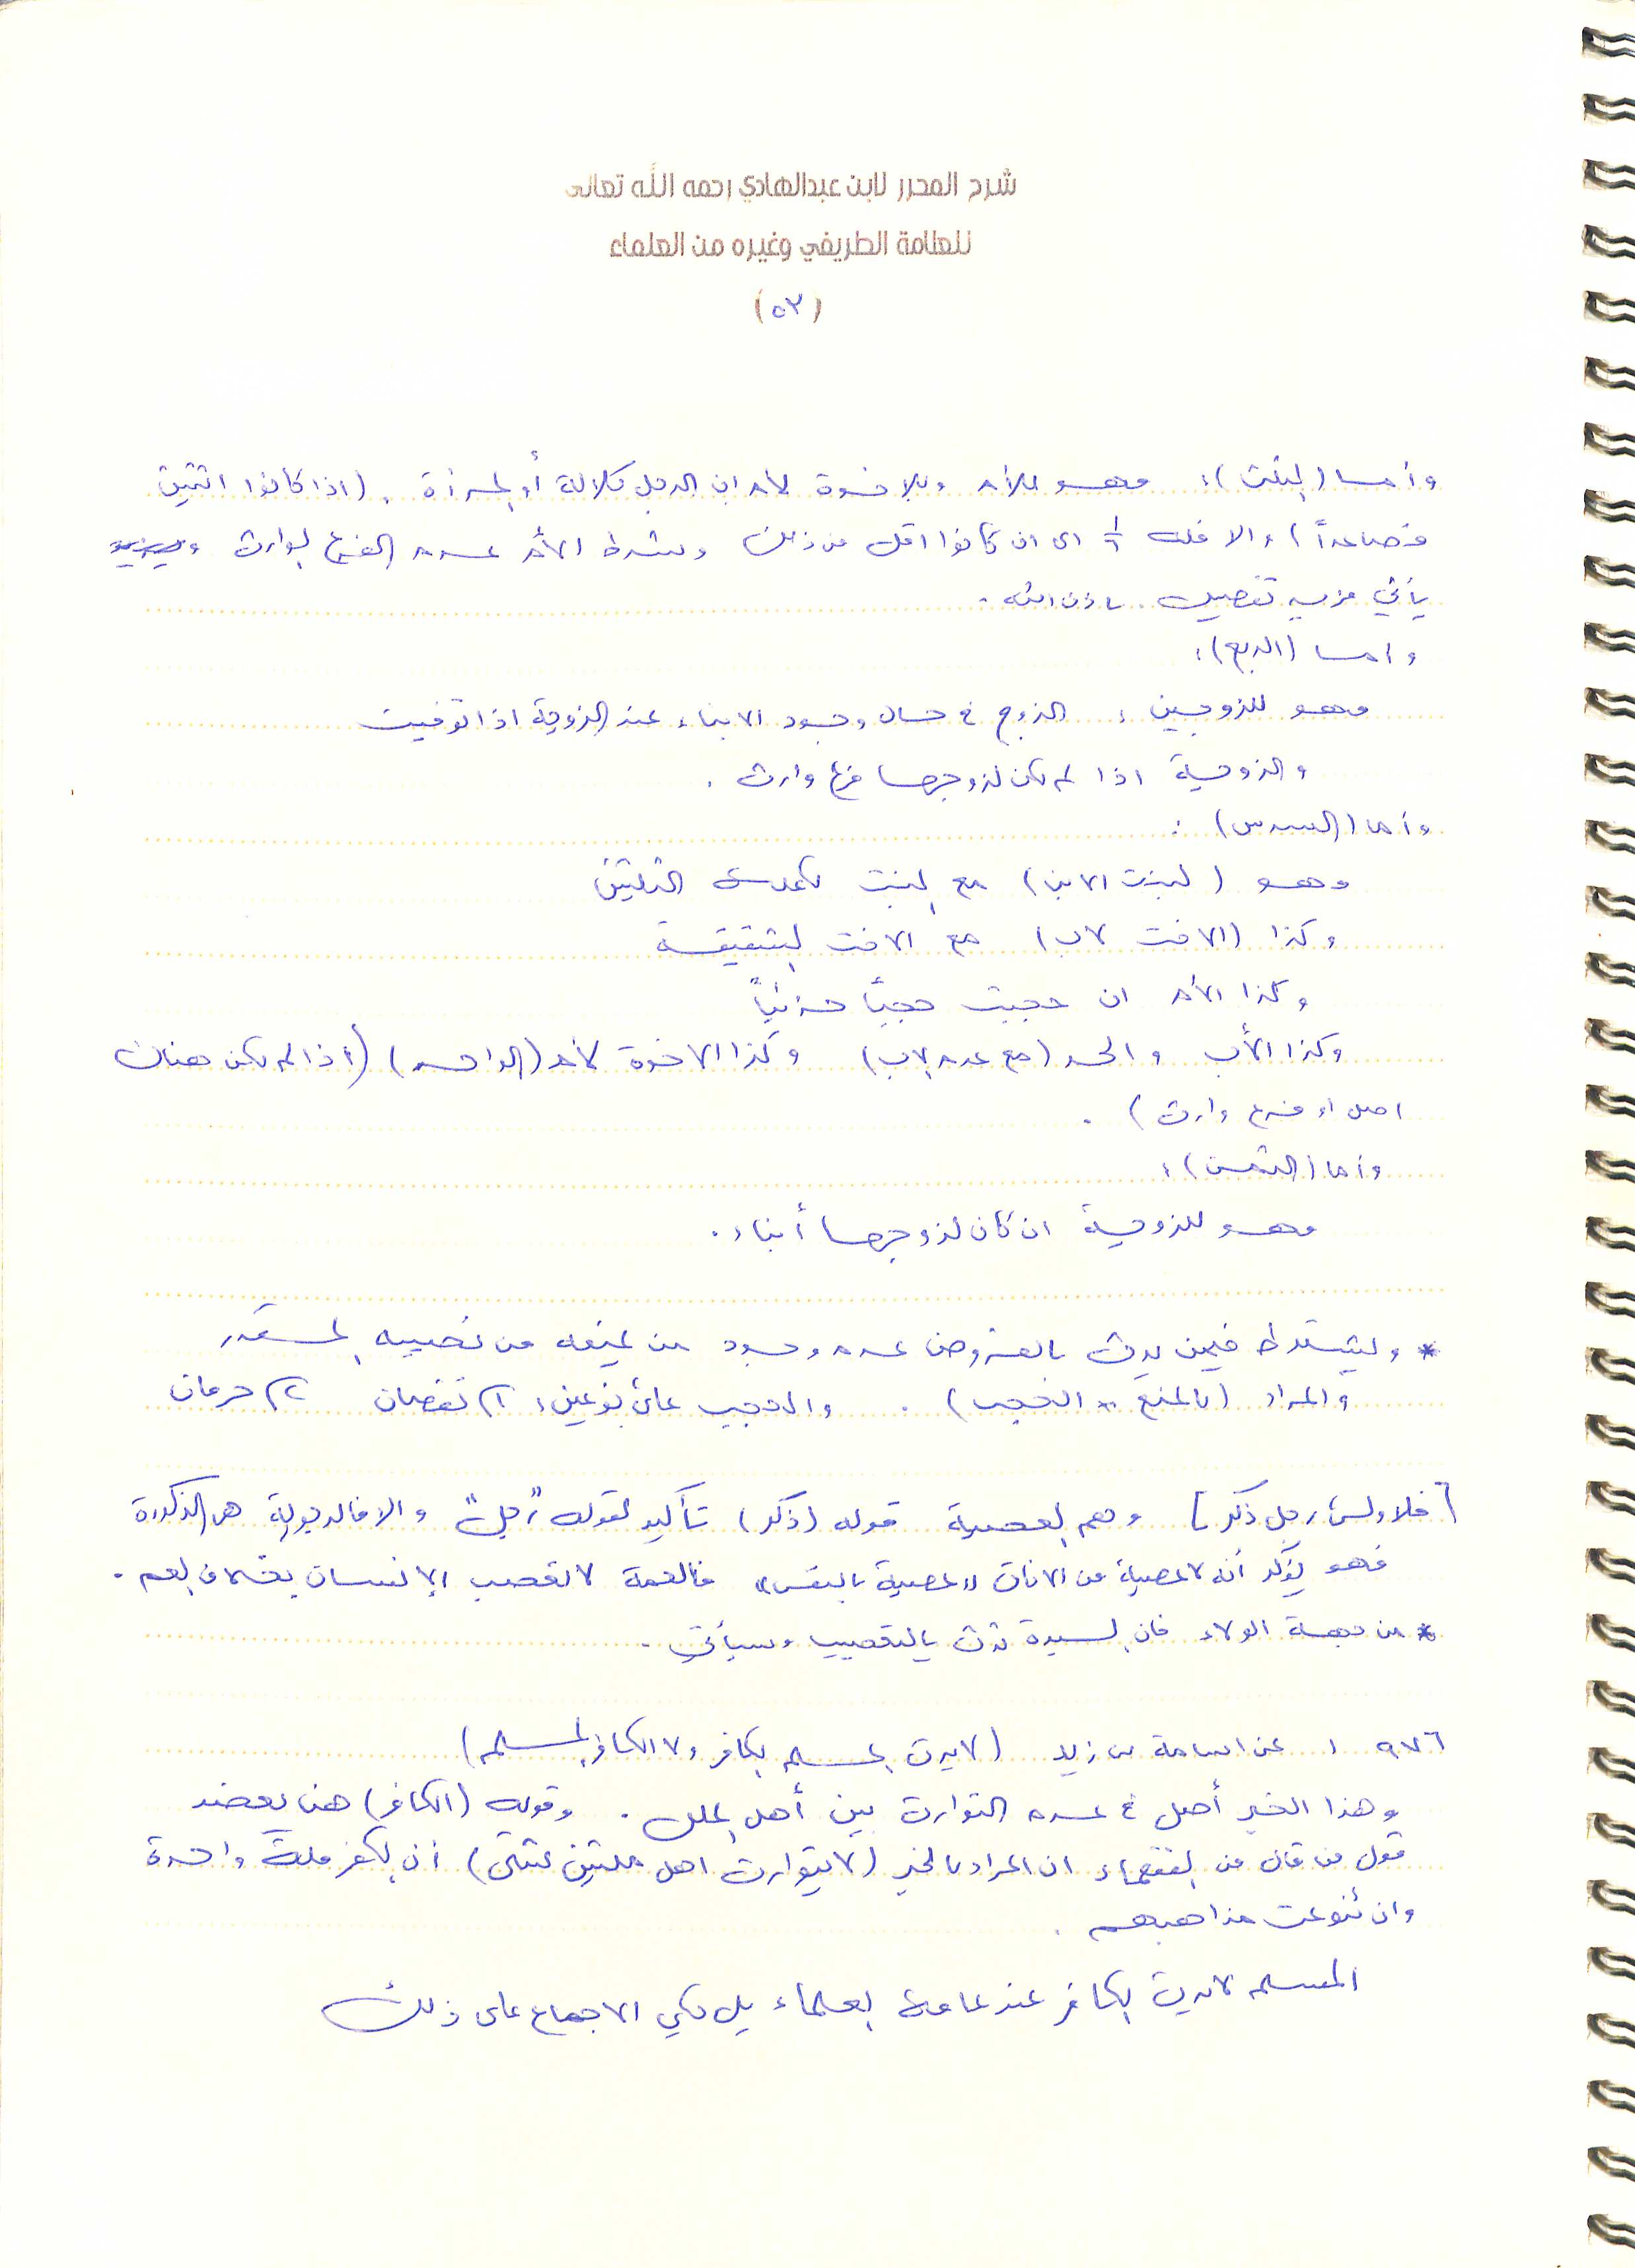 شرح المحرر لابن عبدالهادي رحمه الله تعالى
للعلامة الطريفي وغيره من العلماء
(٥٣)
وأما (الثلث): فهو للأم وللاخوة لأم ان الرجل كلالة أو المرأة. (اذا كانوا اثنين
فصاعداً) والا فله ١/٦ اى ان كانوا اقل من ذلك وبشرط الأم عدم الفرع الوارث
يأتي مزيد تفصيل باذن الله.
واما (الربع):
فهو للزوجين: الزوج في حال وجود الابناء عند الزوجة اذا توفيت
والزوجة اذا لم يكن لزوجها فرع وارث.
وأما (السدس):
وهو (لبنت الابن) مع البنت تكملة الثلثين
وكذا (الاخت لاب) مع الاخت الشقيقة
وكذا الأم ان حجبت حجباً جزئياً
وكذا الأب والجد (مع عدم الاب) وكذا الاخوة لأم (الواحد) (إذا لم يكن هناك
اصل او فرع وارث).
وأما (الثمن):
فهو للزوجة ان كان لزوجها أبناء.
* ويشترط فيمن يرث بالفروض عدم وجود من يمنعه من نصيبه المقدر
والمراد (بالمنع = الحجب). والحجب على نوعين: ١) نقصان ٢) حرمان
[فلاولى رجل ذكر] وهم العصبة قوله (ذكر) تأكيد لقوله "رجل" والا فالرجولية هي الذكورة
فهو يؤكد أنه لا عصبة من الاناث "عصبة بالنفس" فالعمة لا تعصب الإنسان بخلاف العم.
* من جهة الولاء فان السيدة ترث بالتعصيب وسيأتي.
٩٧٦: عن اسامة بن زيد (لا يرث المسلم الكافر ولا الكافر المسلم)
وهذا الخبر أصل في عدم التوارث بين أهل الملل. وقوله (الكافر) هنا يعضد
قول من قال من الفقهاء ان المراد بالخبر (لا يتوارث اهل ملتين شتى) أن الكفر ملة واحدة
وان تنوعت مذاهبهم.
المسلم لا يرث الكافر عند عامة العلماء بل حكي الاجماع على ذلك